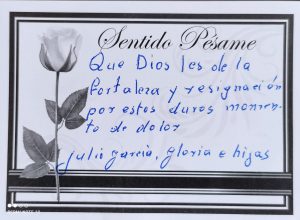 Sentido Pésame
Que Dios les de la
fortaleza y resignación
por estos duros momen-
to de dolor
Julio García, Gloria e hijas